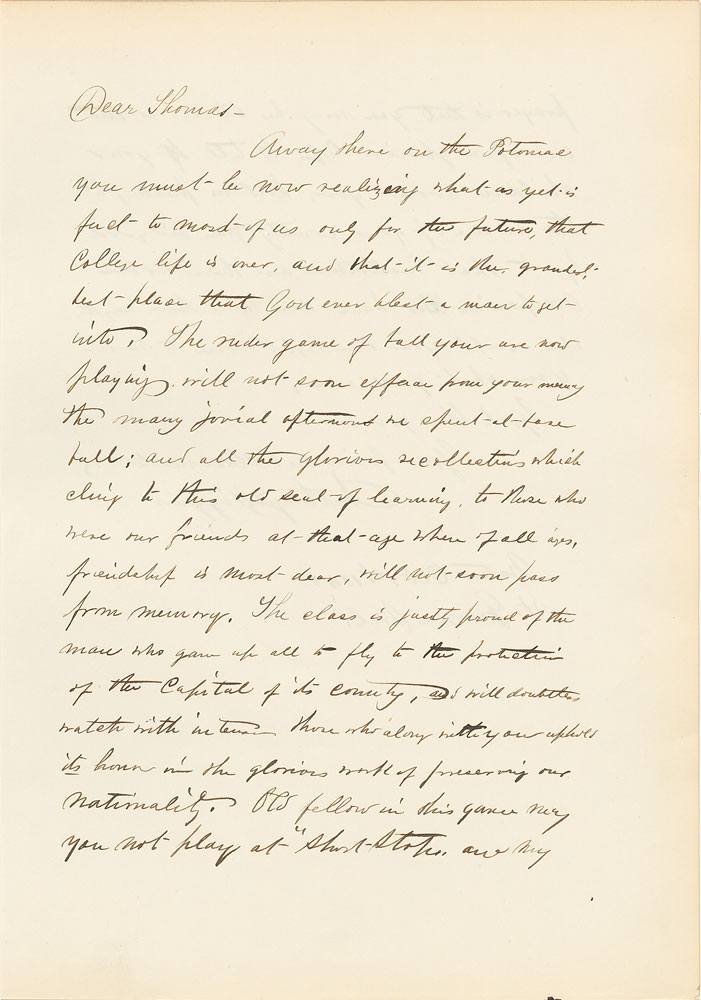 Dear Thomas—
Away there on the Potomac
you must be now realizing what as yet is
fact to most of us only for the future, that
College life is over, and that it is the grandest,
best place that God ever blest a man to get
into. The ruder game of ball your are now
playing, will not soon efface from your memory
the many jovial afternoons we spent at base
ball; and all the glorious recollections which
cling to this old seat of learning, to those who
were our friends at that age when of all ages,
friendship is most dear, will not soon pass
from memory. The class is justly proud of the
man who gave up all to fly to the protection
of the Capital of its country, and will doubtless
watch with those who along with you uphold
its honor in the glorious work of preserving our
nationality. Old fellow in this game may
you not play at "Short Stop. and my